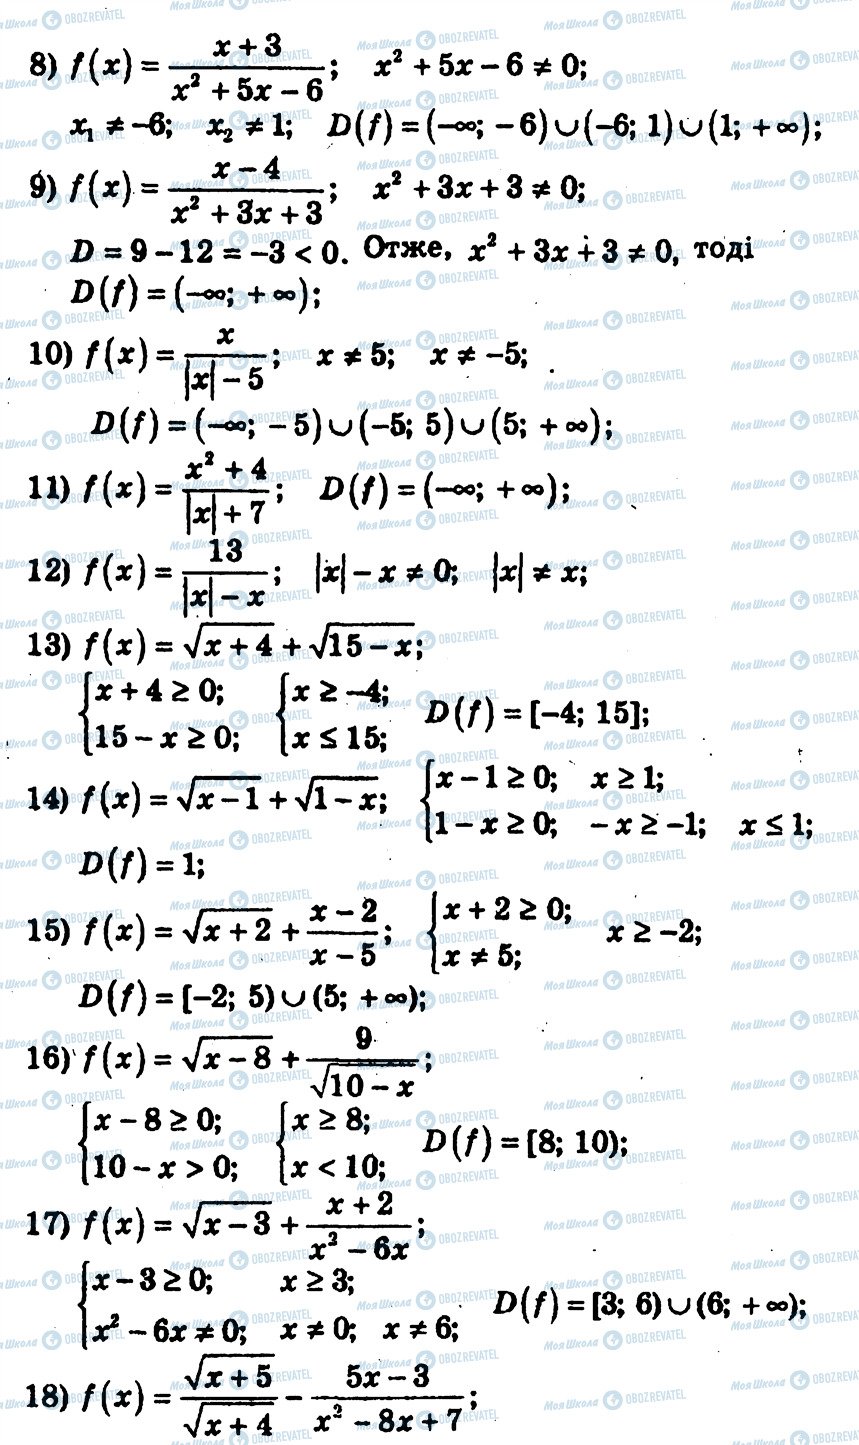 8) f(x) = (x + 3)/(x² + 5x − 6); x² + 5x − 6 ≠ 0;
x₁ ≠ −6; x₂ ≠ 1; D(f) = (−∞; − 6) ∪ (−6; 1) ∪ (1; + ∞);
9) f(x) = (x − 4)/(x² + 3x + 3); x² + 3x + 3 ≠ 0;
D = 9 − 12 = −3 < 0. Отже, x² + 3x + 3 ≠ 0, тоді
D(f) = (−∞; + ∞);
10) f(x) = x/(|x| − 5); x ≠ 5; x ≠ −5;
D(f) = (−∞; − 5) ∪ (−5; 5) ∪ (5; + ∞);
11) f(x) = (x² + 4)/(|x| + 7); D(f) = (−∞; + ∞);
12) f(x) = 13/(|x| − x); |x| − x ≠ 0; |x| ≠ x;
13) f(x) = √(x + 4) + √(15 − x);
{x + 4 ≥ 0; {x ≥ −4;
{15 − x ≥ 0; {x ≤ 15; D(f) = [−4; 15];
14) f(x) = √(x − 1) + √(1 − x); {x − 1 ≥ 0; x ≥ 1;
{1 − x ≥ 0; − x ≥ −1; x ≤ 1;
D(f) = 1;
15) f(x) = √(x + 2) + (x − 2)/(x − 5); {x + 2 ≥ 0; {x ≠ 5; x ≥ −2;
D(f) = [−2; 5) ∪ (5; + ∞);
16) f(x) = √(x − 8) + 9/√(10 − x);
{x − 8 ≥ 0; {x ≥ 8;
{10 − x > 0; {x < 10; D(f) = [8; 10);
17) f(x) = √(x − 3) + (x + 2)/(x² − 6x);
{x − 3 ≥ 0; x ≥ 3;
{x² − 6x ≠ 0; x ≠ 0; x ≠ 6; D(f) = [3; 6) ∪ (6; + ∞);
18) f(x) = √(x + 5)/√(x + 4) − (5x − 3)/(x² − 8x + 7);
Моя Школа OBOZREVATEL